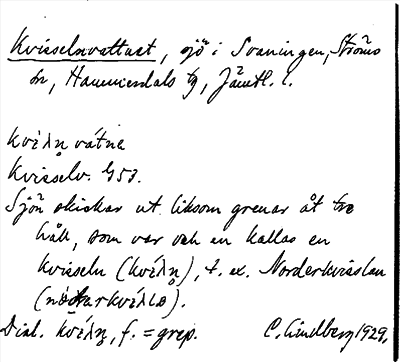 Kvisselnvattnet, sjö i Svaningen, Ströms
sn, Hammerdals tg, Jämtl. l.
kvíln vátne
Kvisselv. G53.
Sjön skickar ut liksom grenar åt tre
håll, som var och en kallas en
kvisseln (kvíln), t. ex. Norderkvisslan
Dial. kvíln, f. = grep. C. Lindberg 1929.